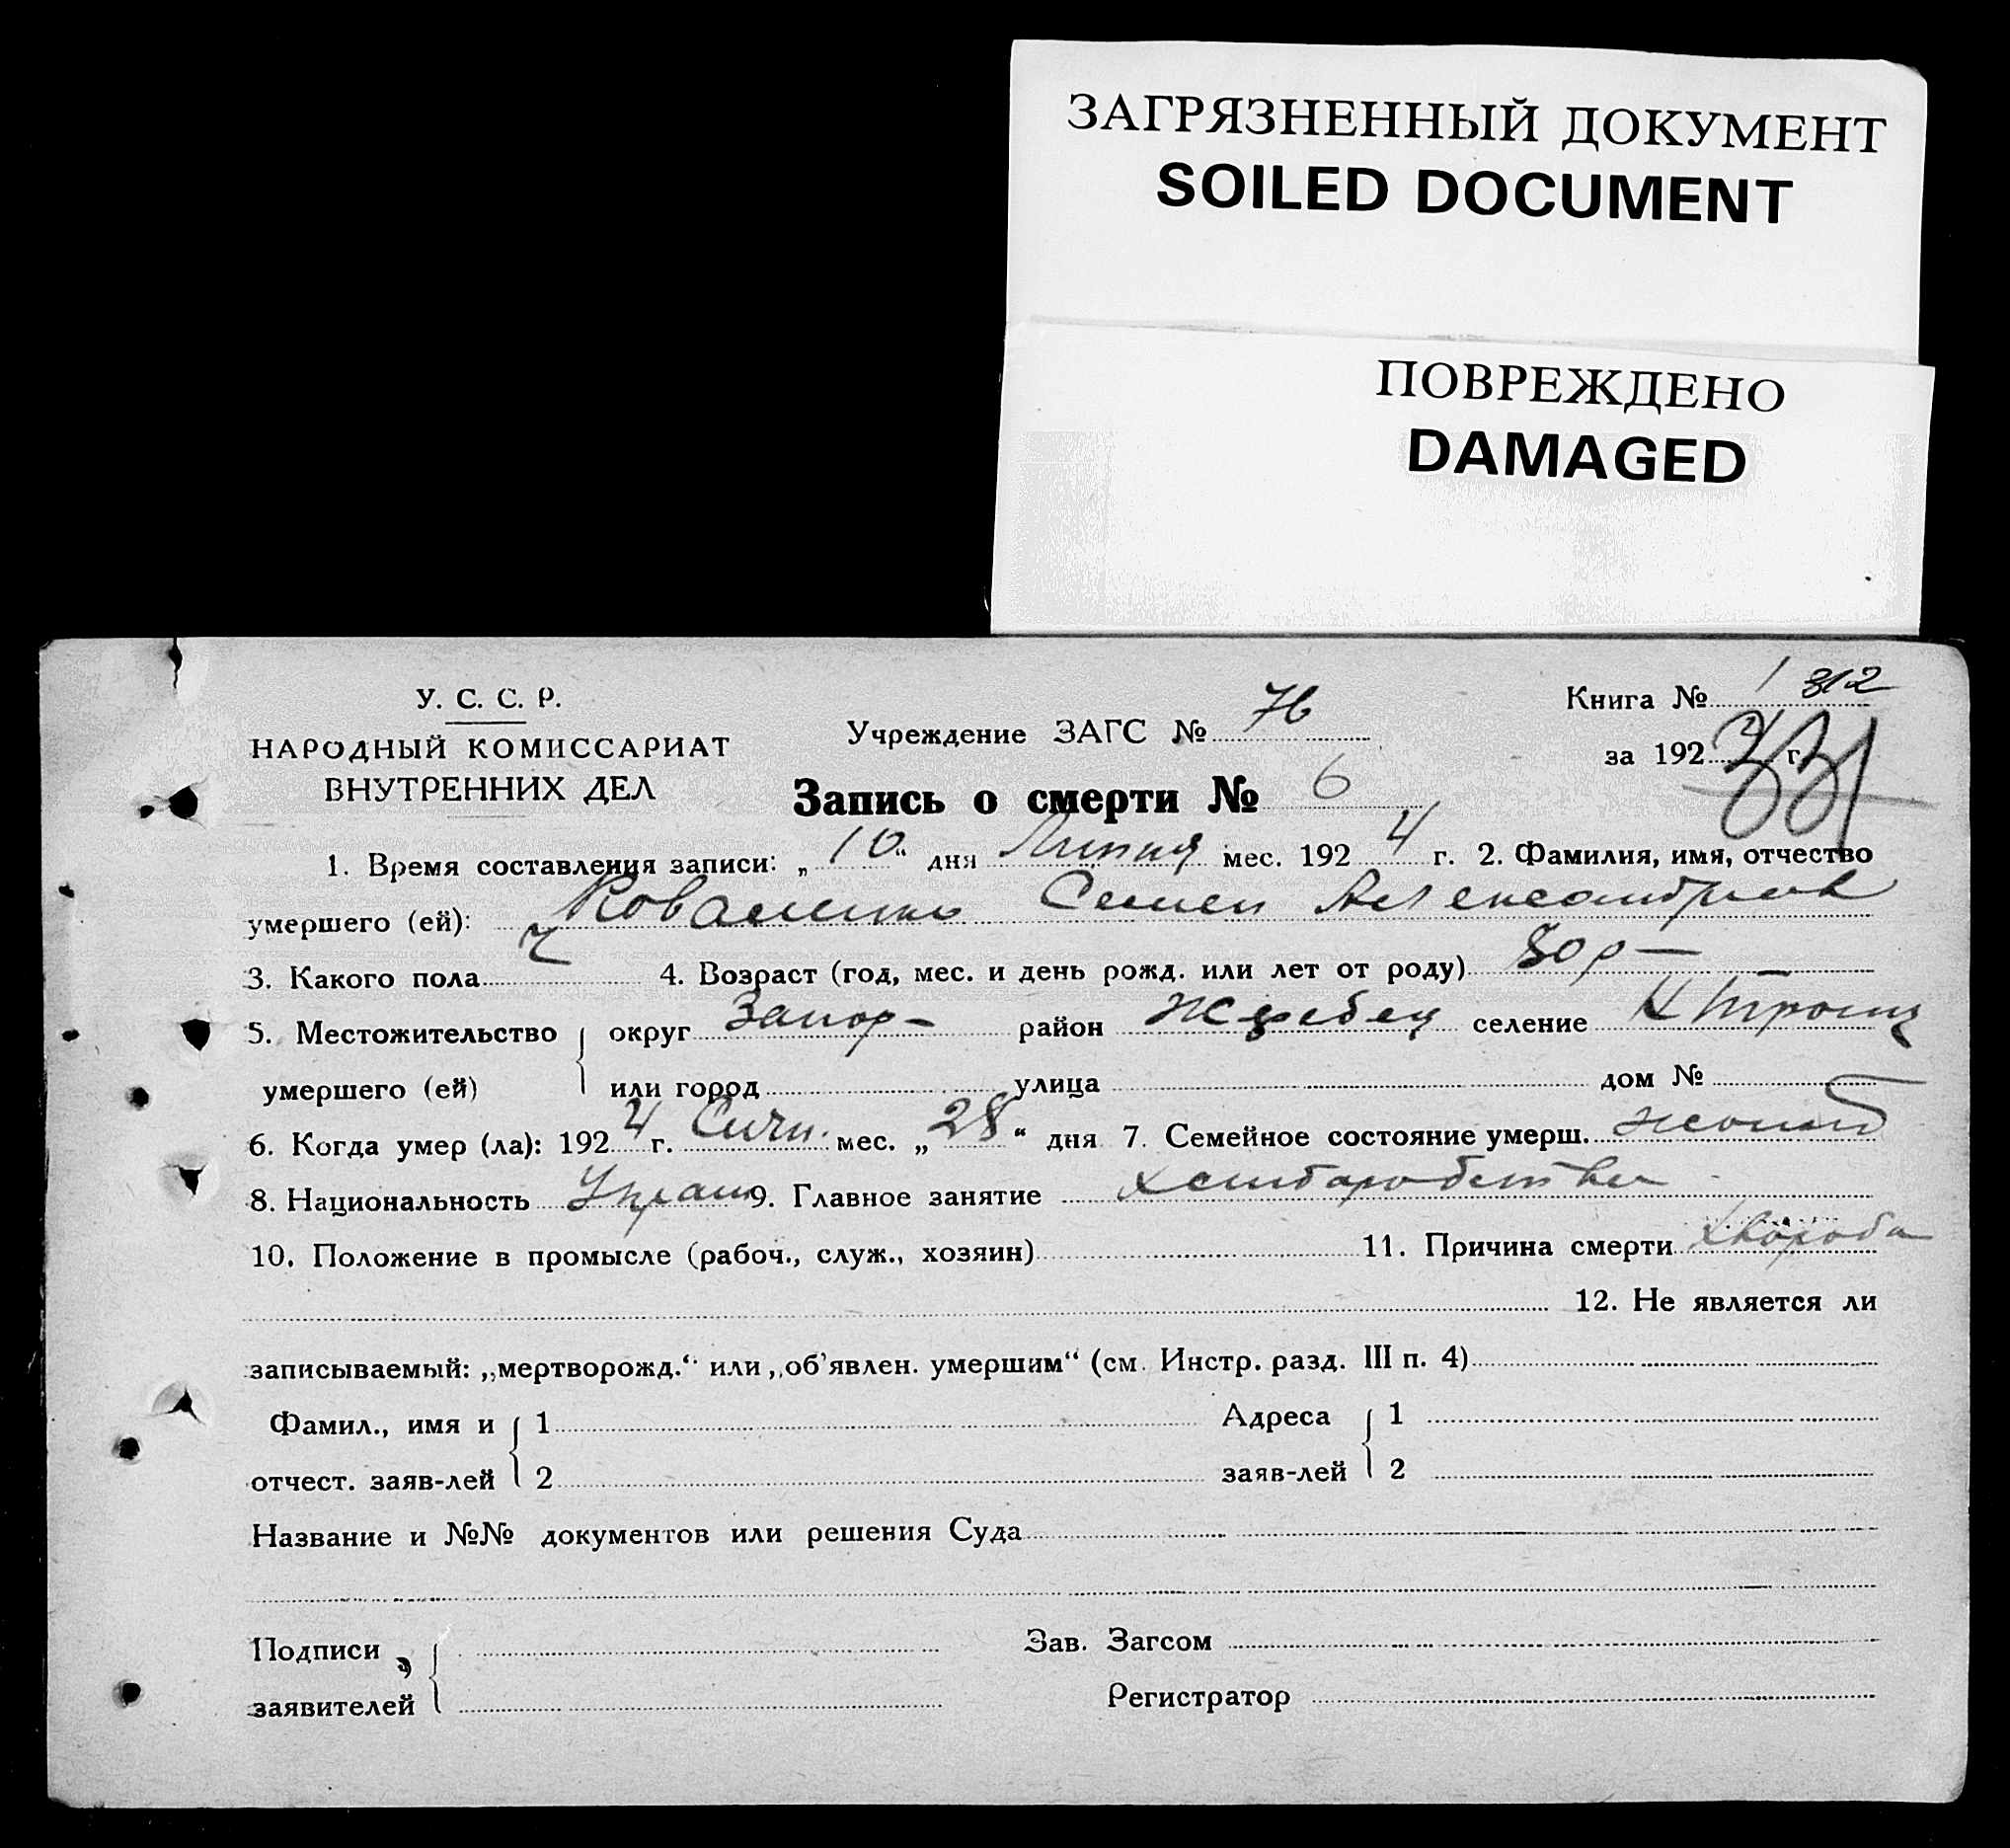 ЗАГРЯЗНЕННЫЙ ДОКУМЕНТ
SOILED DOCUMENT
ПОВРЕЖДЕНО
DAMAGED
У. С. С. Р.
НАРОДНЫЙ КОМИССАРИАТ
ВНУТРЕННИХ ДЕЛ
Учреждение ЗАГС № 76
Книга № 1 312
за 192 4 г. 331
Запись о смерти № 6
1. Время составления записи: „ 10 “ дня Липня мес. 192 4 г. 2. Фамилия, имя, отчество
умершего (ей): Семен Александров
3. Какого пола ч 4. Возраст (год, мес. и день рожд. или лет от роду) 80 р —
5. Местожительство округ Запор- район Жеребец селение
умершего (ей) или город улица дом №
6. Когда умер (ла): 192 4 г. Сичн. мес. „ 28 “ дня 7. Семейное состояние умерш.
8. Национальность Украин 9. Главное занятие
10. Положение в промысле (рабоч., служ., хозяин) 11. Причина смерти Хвороба
12. Не является ли
записываемый: „мертворожд.“ или „об'явлен. умершим“ (см. Инстр. разд. III п. 4)
Фамил., имя и 1 Адреса 1
отчест. заяв-лей 2 заяв-лей 2
Название и №№ документов или решения Суда
Подписи Зав. Загсом
заявителей Регистратор